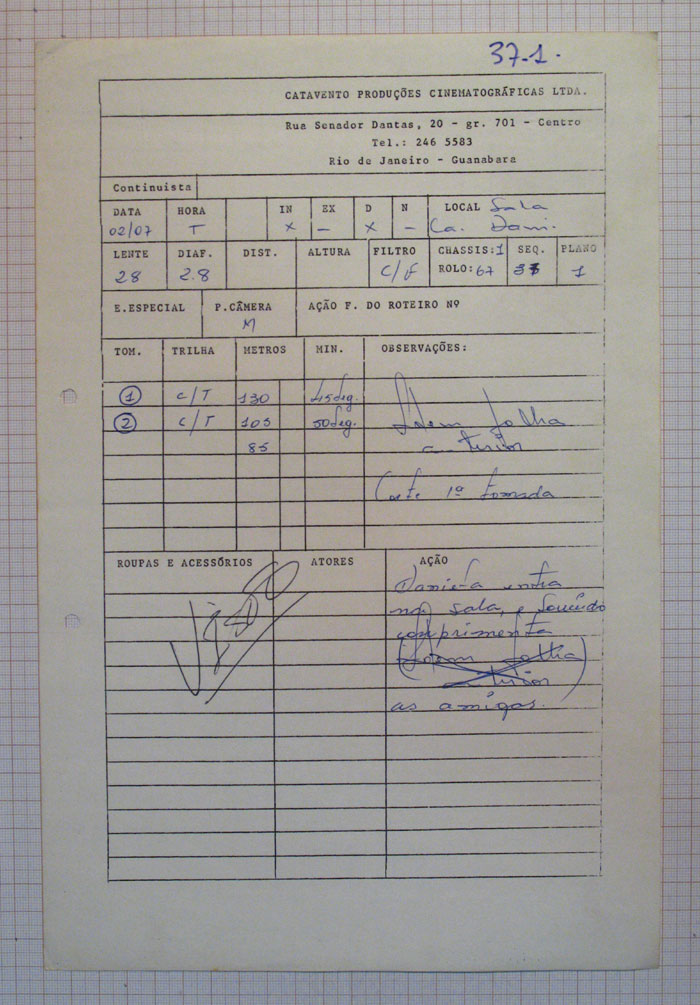 37-1.
CATAVENTO PRODUÇÕES CINEMATOGRÁFICAS LTDA.
Rua Senador Dantas, 20 - gr. 701 - Centro
Tel.: 246 5583
Rio de Janeiro - Guanabara
Continuista
DATA HORA IN EX D N LOCAL Sala
02/07 T x - x - Ca. Dani.
LENTE DIAF. DIST. ALTURA FILTRO CHASSIS:1 SEQ. PLANO
28 2.8 C/F ROLO:67 37 1
E.ESPECIAL P.CÂMERA AÇÃO F. DO ROTEIRO Nº
M
TOM. TRILHA METROS MIN. OBSERVAÇÕES:
1 C/T 130 45seg.
2 C/T 105 50seg. Idem folha
85 anterior
1ª tomada
ROUPAS E ACESSÓRIOS ATORES AÇÃO
Daniela entra
na sala, e
comprimenta
(Idem folha
anterior)
as amigas.